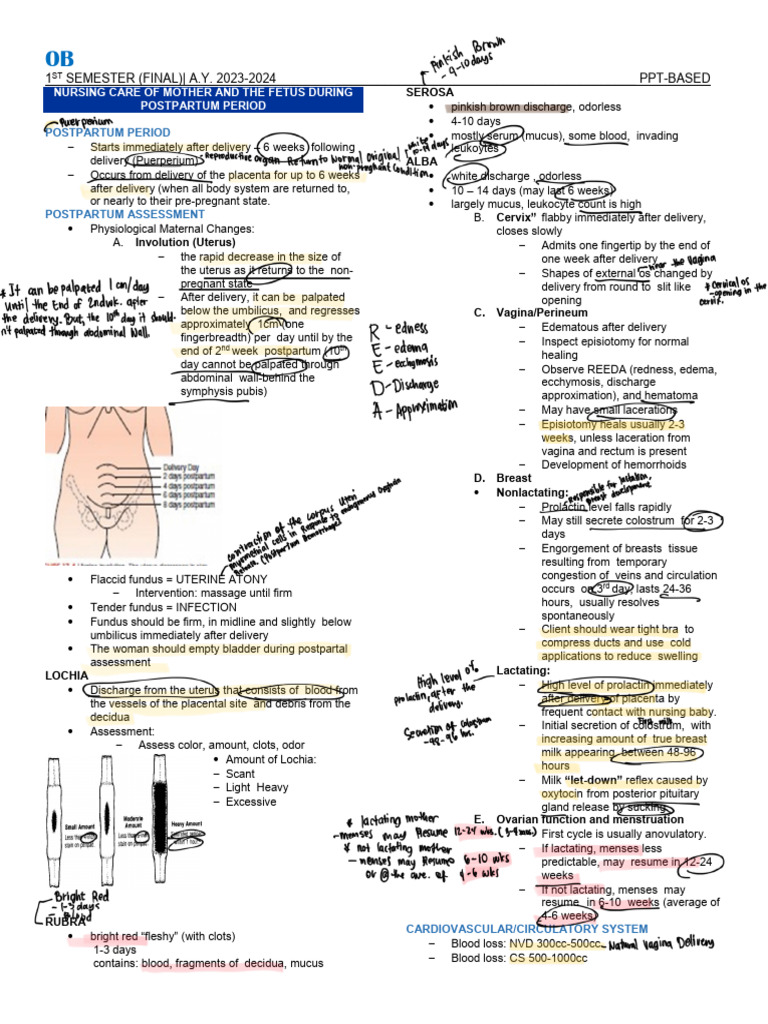 OB
1ST SEMESTER (FINAL)| A.Y. 2023-2024
PPT-BASED
NURSING CARE OF MOTHER AND THE FETUS DURING
POSTPARTUM PERIOD
Puerperium
POSTPARTUM PERIOD
– Starts immediately after delivery – 6 weeks following
delivery (Puerperium)
• Reproductive Organ Return to Normal Original
non-pregnant Condition
– Occurs from delivery of the placenta for up to 6 weeks
after delivery (when all body system are returned to,
or nearly to their pre-pregnant state.
POSTPARTUM ASSESSMENT
• Physiological Maternal Changes:
A. Involution (Uterus)
– the rapid decrease in the size of
the uterus as it returns to the non-
pregnant state
– After delivery, it can be palpated
below the umbilicus, and regresses
approximately 1cm (one
fingerbreadth) per day until by the
end of 2nd week postpartum (10th
day cannot be palpated through
abdominal wall-behind the
symphysis pubis)
* It can be palpated 1 cm/day
until the End of 2nd wk. after
the delivery. But, the 10th day it should
n't palpated through abdominal Wall.
R - edness
E - edema
E - ecchymosis
D - Discharge
A - Approximation
Delivery Day
2 days postpartum
4 days postpartum
6 days postpartum
8 days postpartum
contraction of the corpus uteri
myometrial cells in Response to endogenous
(Postpartum Hemorrhage)
• Flaccid fundus = UTERINE ATONY
– Intervention: massage until firm
• Tender fundus = INFECTION
• Fundus should be firm, in midline and slightly below
umbilicus immediately after delivery
• The woman should empty bladder during postpartal
assessment
LOCHIA
• Discharge from the uterus that consists of blood from
the vessels of the placental site and debris from the
decidua
• Assessment:
– Assess color, amount, clots, odor
• Amount of Lochia:
– Scant
– Light Heavy
– Excessive
Small Amount
Less than
stain on
Moderate
Amount
Less than
stain on
Heavy Amount
Bright Red
- 1-3 days
- Blood
RUBRA
• bright red “fleshy” (with clots)
1-3 days
contains: blood, fragments of decidua, mucus
Pinkish Brown
- 4-10 days
SEROSA
• pinkish brown discharge, odorless
• 4-10 days
• mostly serum (mucus), some blood, invading
leukoytes
white
10-14 days
ALBA
• white discharge , odorless
• 10 – 14 days (may last 6 weeks)
• largely mucus, leukocyte count is high
B. Cervix” flabby immediately after delivery,
closes slowly
– Admits one fingertip by the end of
one week after delivery
near the vagina
– Shapes of external os changed by
delivery from round to slit like
opening
* Cervical os
- opening in the
cervix.
C. Vagina/Perineum
– Edematous after delivery
– Inspect episiotomy for normal
healing
– Observe REEDA (redness, edema,
ecchymosis, discharge
approximation), and hematoma
– May have small lacerations
– Episiotomy heals usually 2-3
weeks, unless laceration from
vagina and rectum is present
– Development of hemorrhoids
D. Breast
• Nonlactating:
Responsible for lactation,
breast development
– Prolactin level falls rapidly
– May still secrete colostrum for 2-3
days
– Engorgement of breasts tissue
resulting from temporary
congestion of veins and circulation
occurs on 3rd day, lasts 24-36
hours, usually resolves
spontaneously
– Client should wear tight bra to
compress ducts and use cold
applications to reduce swelling
Lactating:
High level of
prolactin, after the
delivery.
– High level of prolactin immediately
after delivery of placenta by
frequent contact with nursing baby.
First milk
– Initial secretion of colostrum, with
increasing amount of true breast
milk appearing between 48-96
hours
Secretion of Colostrum
- 48-96 hrs.
– Milk “let-down” reflex caused by
oxytocin from posterior pituitary
gland release by sucking.
E. Ovarian function and menstruation
– First cycle is usually anovulatory.
– If lactating, menses less
predictable, may resume in 12-24
weeks
– If not lactating, menses may
resume in 6-10 weeks (average of
4-6 weeks)
* lactating mother
- menses may Resume 12-24 wks.
* not lactating mother
- menses may Resume 6-10 wks
or @ the ave. of 4-6 wks
CARDIOVASCULAR/CIRCULATORY SYSTEM
– Blood loss: NVD 300cc-500cc
- Natural Vagina Delivery
– Blood loss: CS 500-1000cc